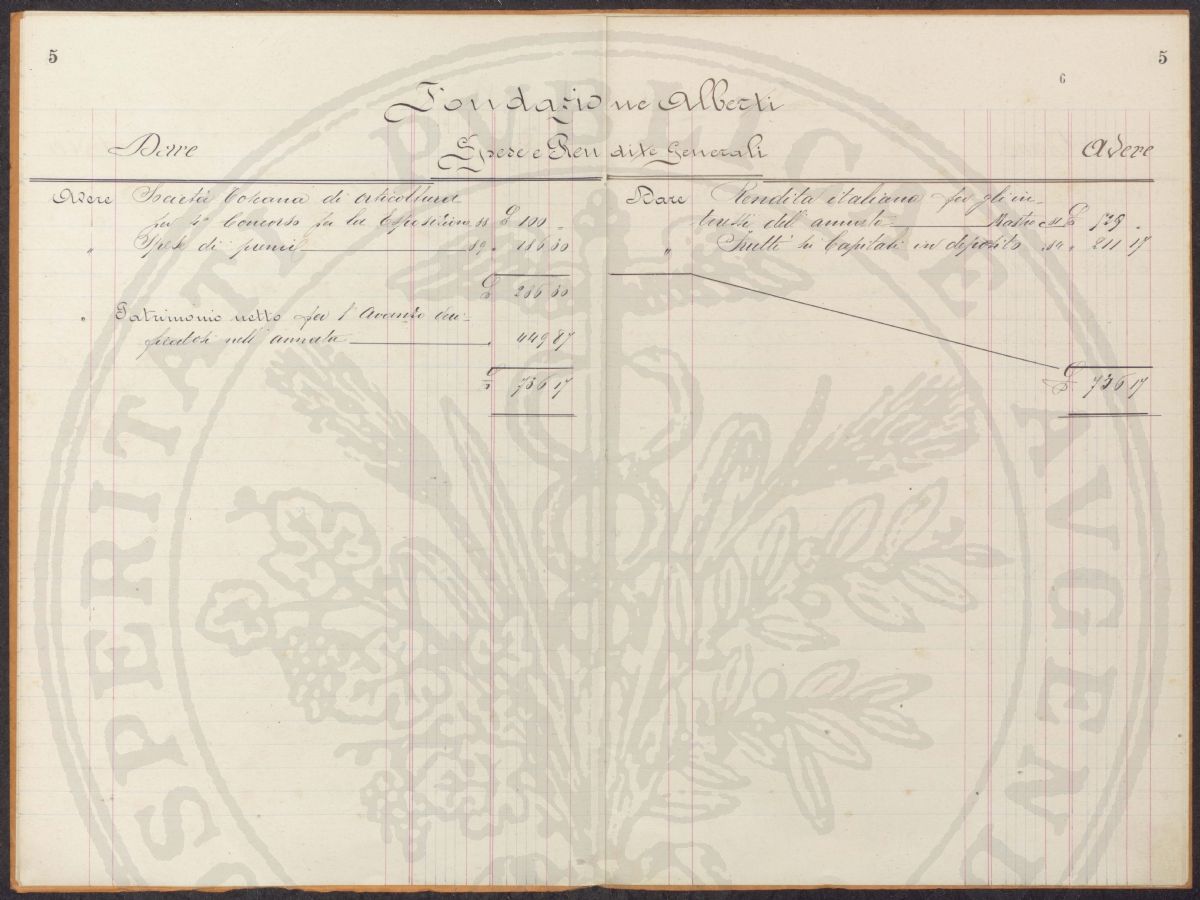 5
5
6
Fondazione Alberti
Dare
Spese e Rendite Generali
Avere
Avere Società Toscana di orticoltura
pel 4° Concorso per la Esposizione 88 £ 100 "
" Spese di premi 89 " 186 30
£ 286 30
" Patrimonio netto per l'Avanzo veri-
ficatosi nell'annata " 449 87
£ 736 17
Dare Rendita italiana per gli in-
teressi dell'annata £ 525 "
" Frutti su Capitali in deposito " 211 17
£ 736 17
SPERITATI PVBLICAE AVGEND